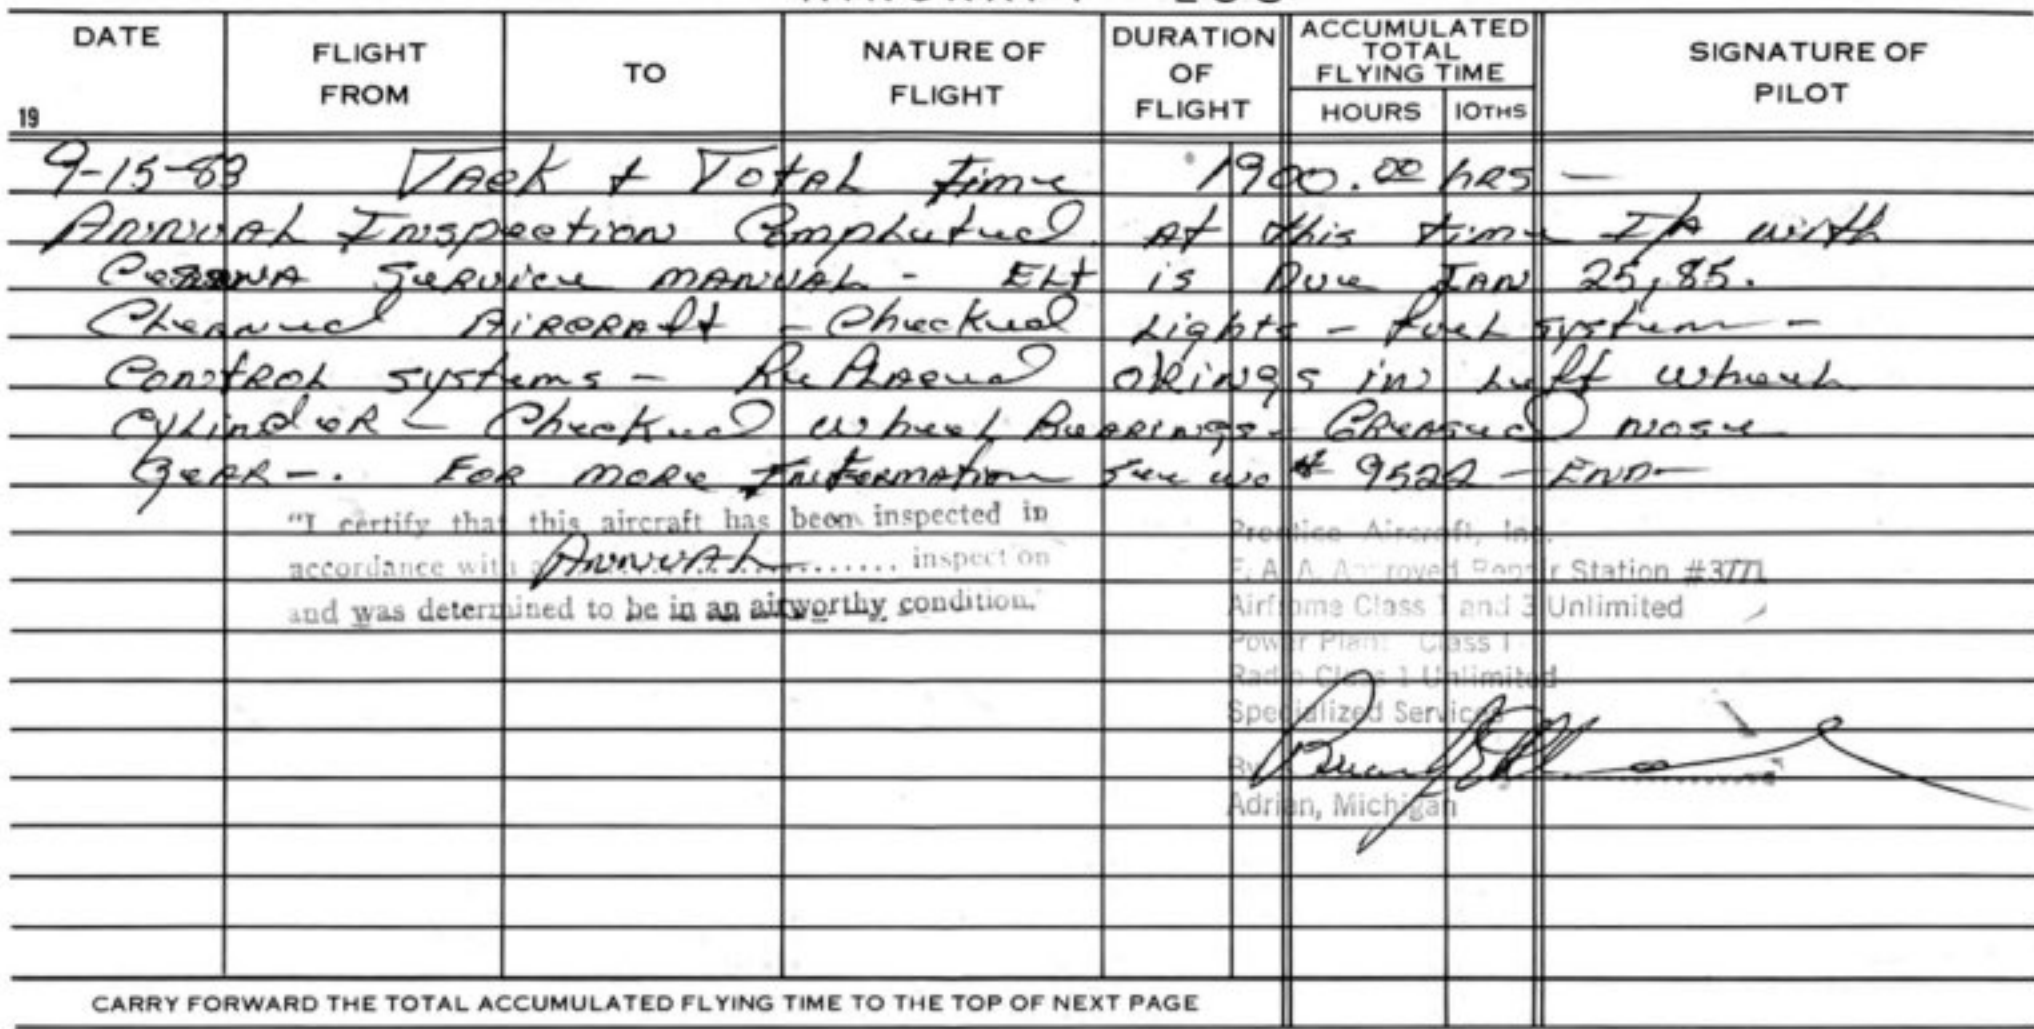 AIRCRAFT LOG
DATE
19
FLIGHT
FROM
TO
NATURE OF
FLIGHT
DURATION
OF
FLIGHT
ACCUMULATED
TOTAL
FLYING TIME
HOURS
10THS
SIGNATURE OF
PILOT
9-15-83 Tack & Total Time 1900.00 hrs -
Annual Inspection Completed. At this time I/A with
Cessna Service Manual - ELT is Due Jan 25, 85.
Cleaned Aircraft - Checked Lights - fuel system -
Control systems - Replaced orings in Left wheel
cylinder - Checked wheel Bearings - Greased nose
gear -. For more Information see wo # 9522 - End -
"I certify that this aircraft has been inspected in
accordance with a Annual inspection
and was determined to be in an airworthy condition."
Prentice Aircraft, Inc.
F. A. A. Approved Repair Station #3771
Airframe Class 1 and 3 Unlimited
Power Plant Class 1
Radio Class 1 Unlimited
Specialized Services
By
Adrian, Michigan
CARRY FORWARD THE TOTAL ACCUMULATED FLYING TIME TO THE TOP OF NEXT PAGE